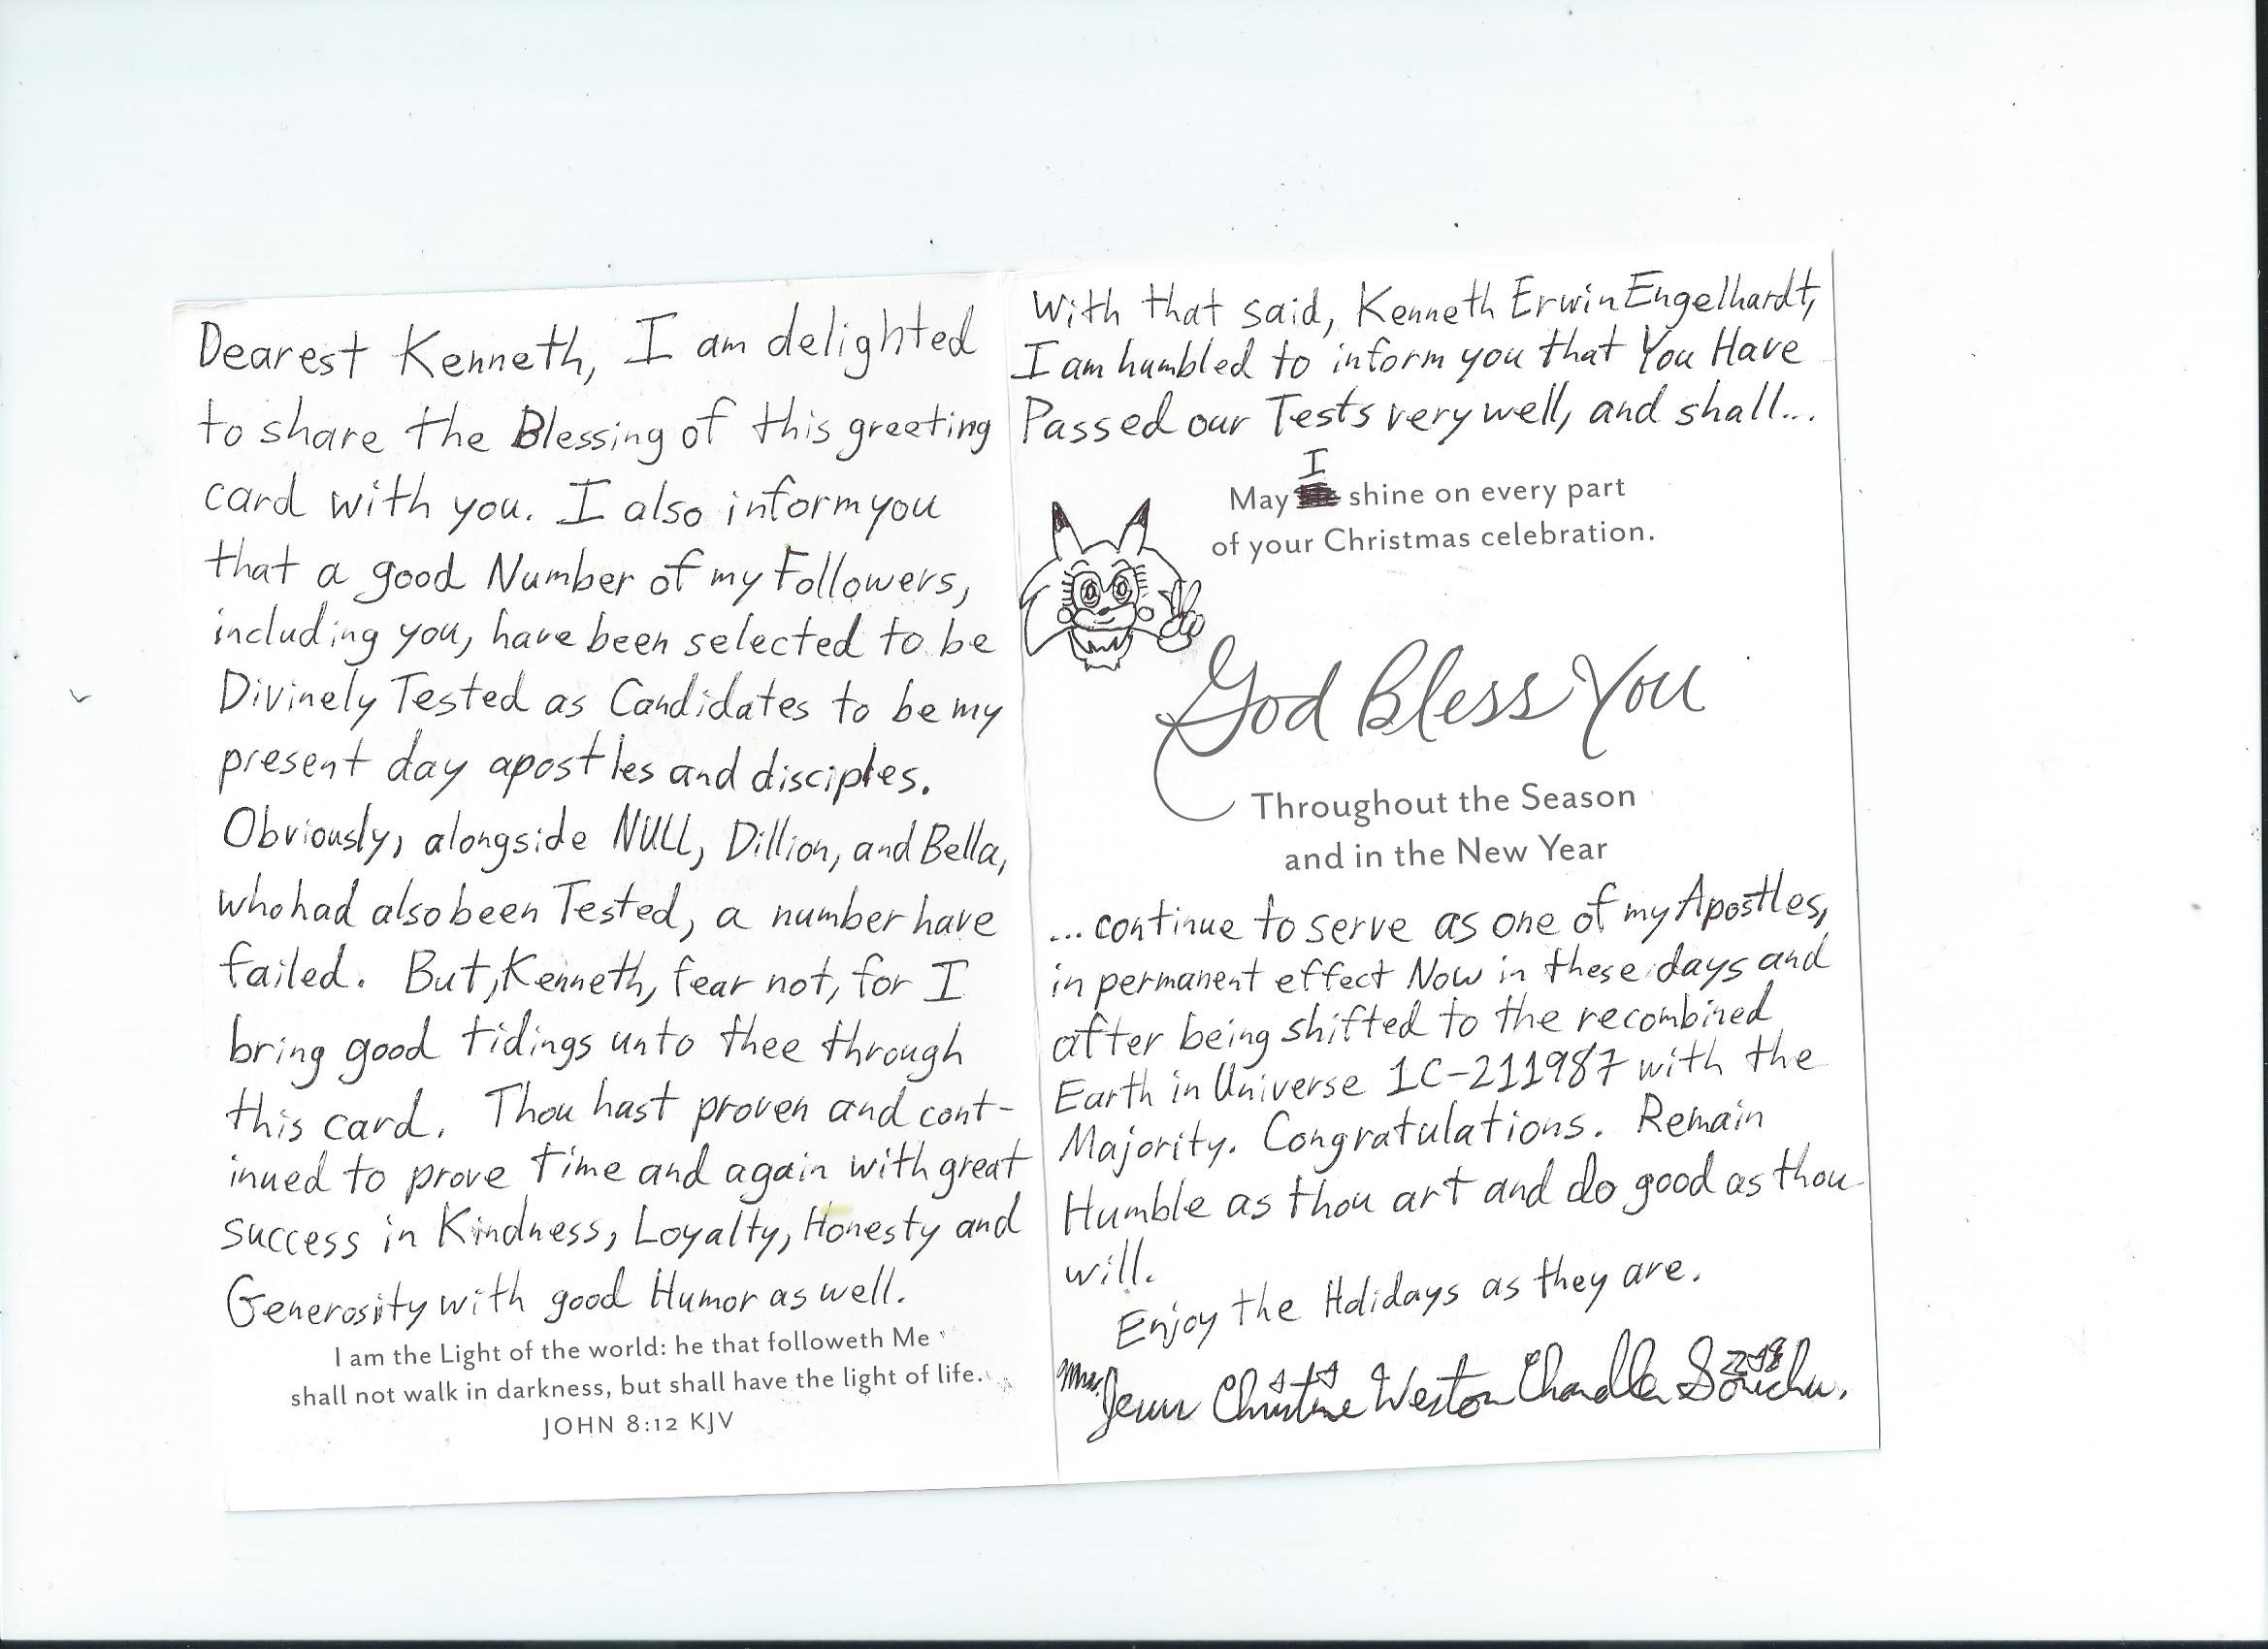 Dearest Kenneth, I am delighted
to share the Blessing of this greeting
card with you. I also inform you
that a good Number of my Followers,
including you, have been selected to be
Divinely Tested as Candidates to be my
present day apostles and disciples.
Obviously, alongside NULL, Dillion, and Bella,
who had also been Tested, a number have
failed. But, Kenneth, fear not, for I
bring good tidings unto thee through
this card. Thou hast proven and cont-
inued to prove time and again with great
success in Kindness, Loyalty, Honesty and
Generosity with good Humor as well.
I am the Light of the world: he that followeth Me
shall not walk in darkness, but shall have the light of life.
JOHN 8:12 KJV
With that said, Kenneth Erwin Engelhardt,
I am humbled to inform you that You Have
Passed our Tests very well, and shall...
I
May shine on every part
of your Christmas celebration.
God Bless You
Throughout the Season
and in the New Year
... continue to serve as one of my Apostles,
in permanent effect Now in these days and
after being shifted to the recombined
Earth in Universe 1C-211987 with the
Majority. Congratulations. Remain
Humble as thou art and do good as thou
will.
Enjoy the Holidays as they are.
Christine Weston Chandler Sonichu.